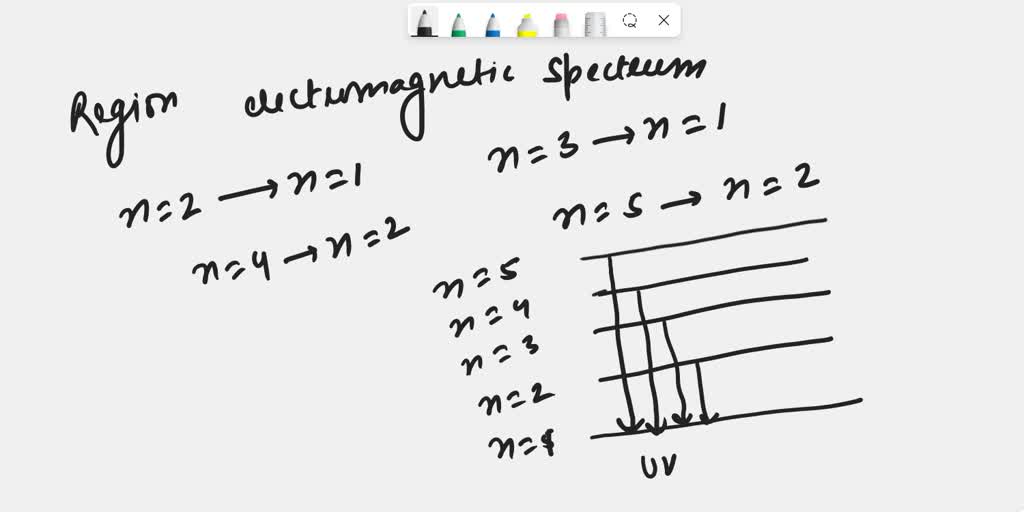 Region electromagnetic spectrum
n=2 → n=1
n=3 → n=1
n=4 → n=2
n=5 → n=2
n=5
n=4
n=3
n=2
n=1
UV